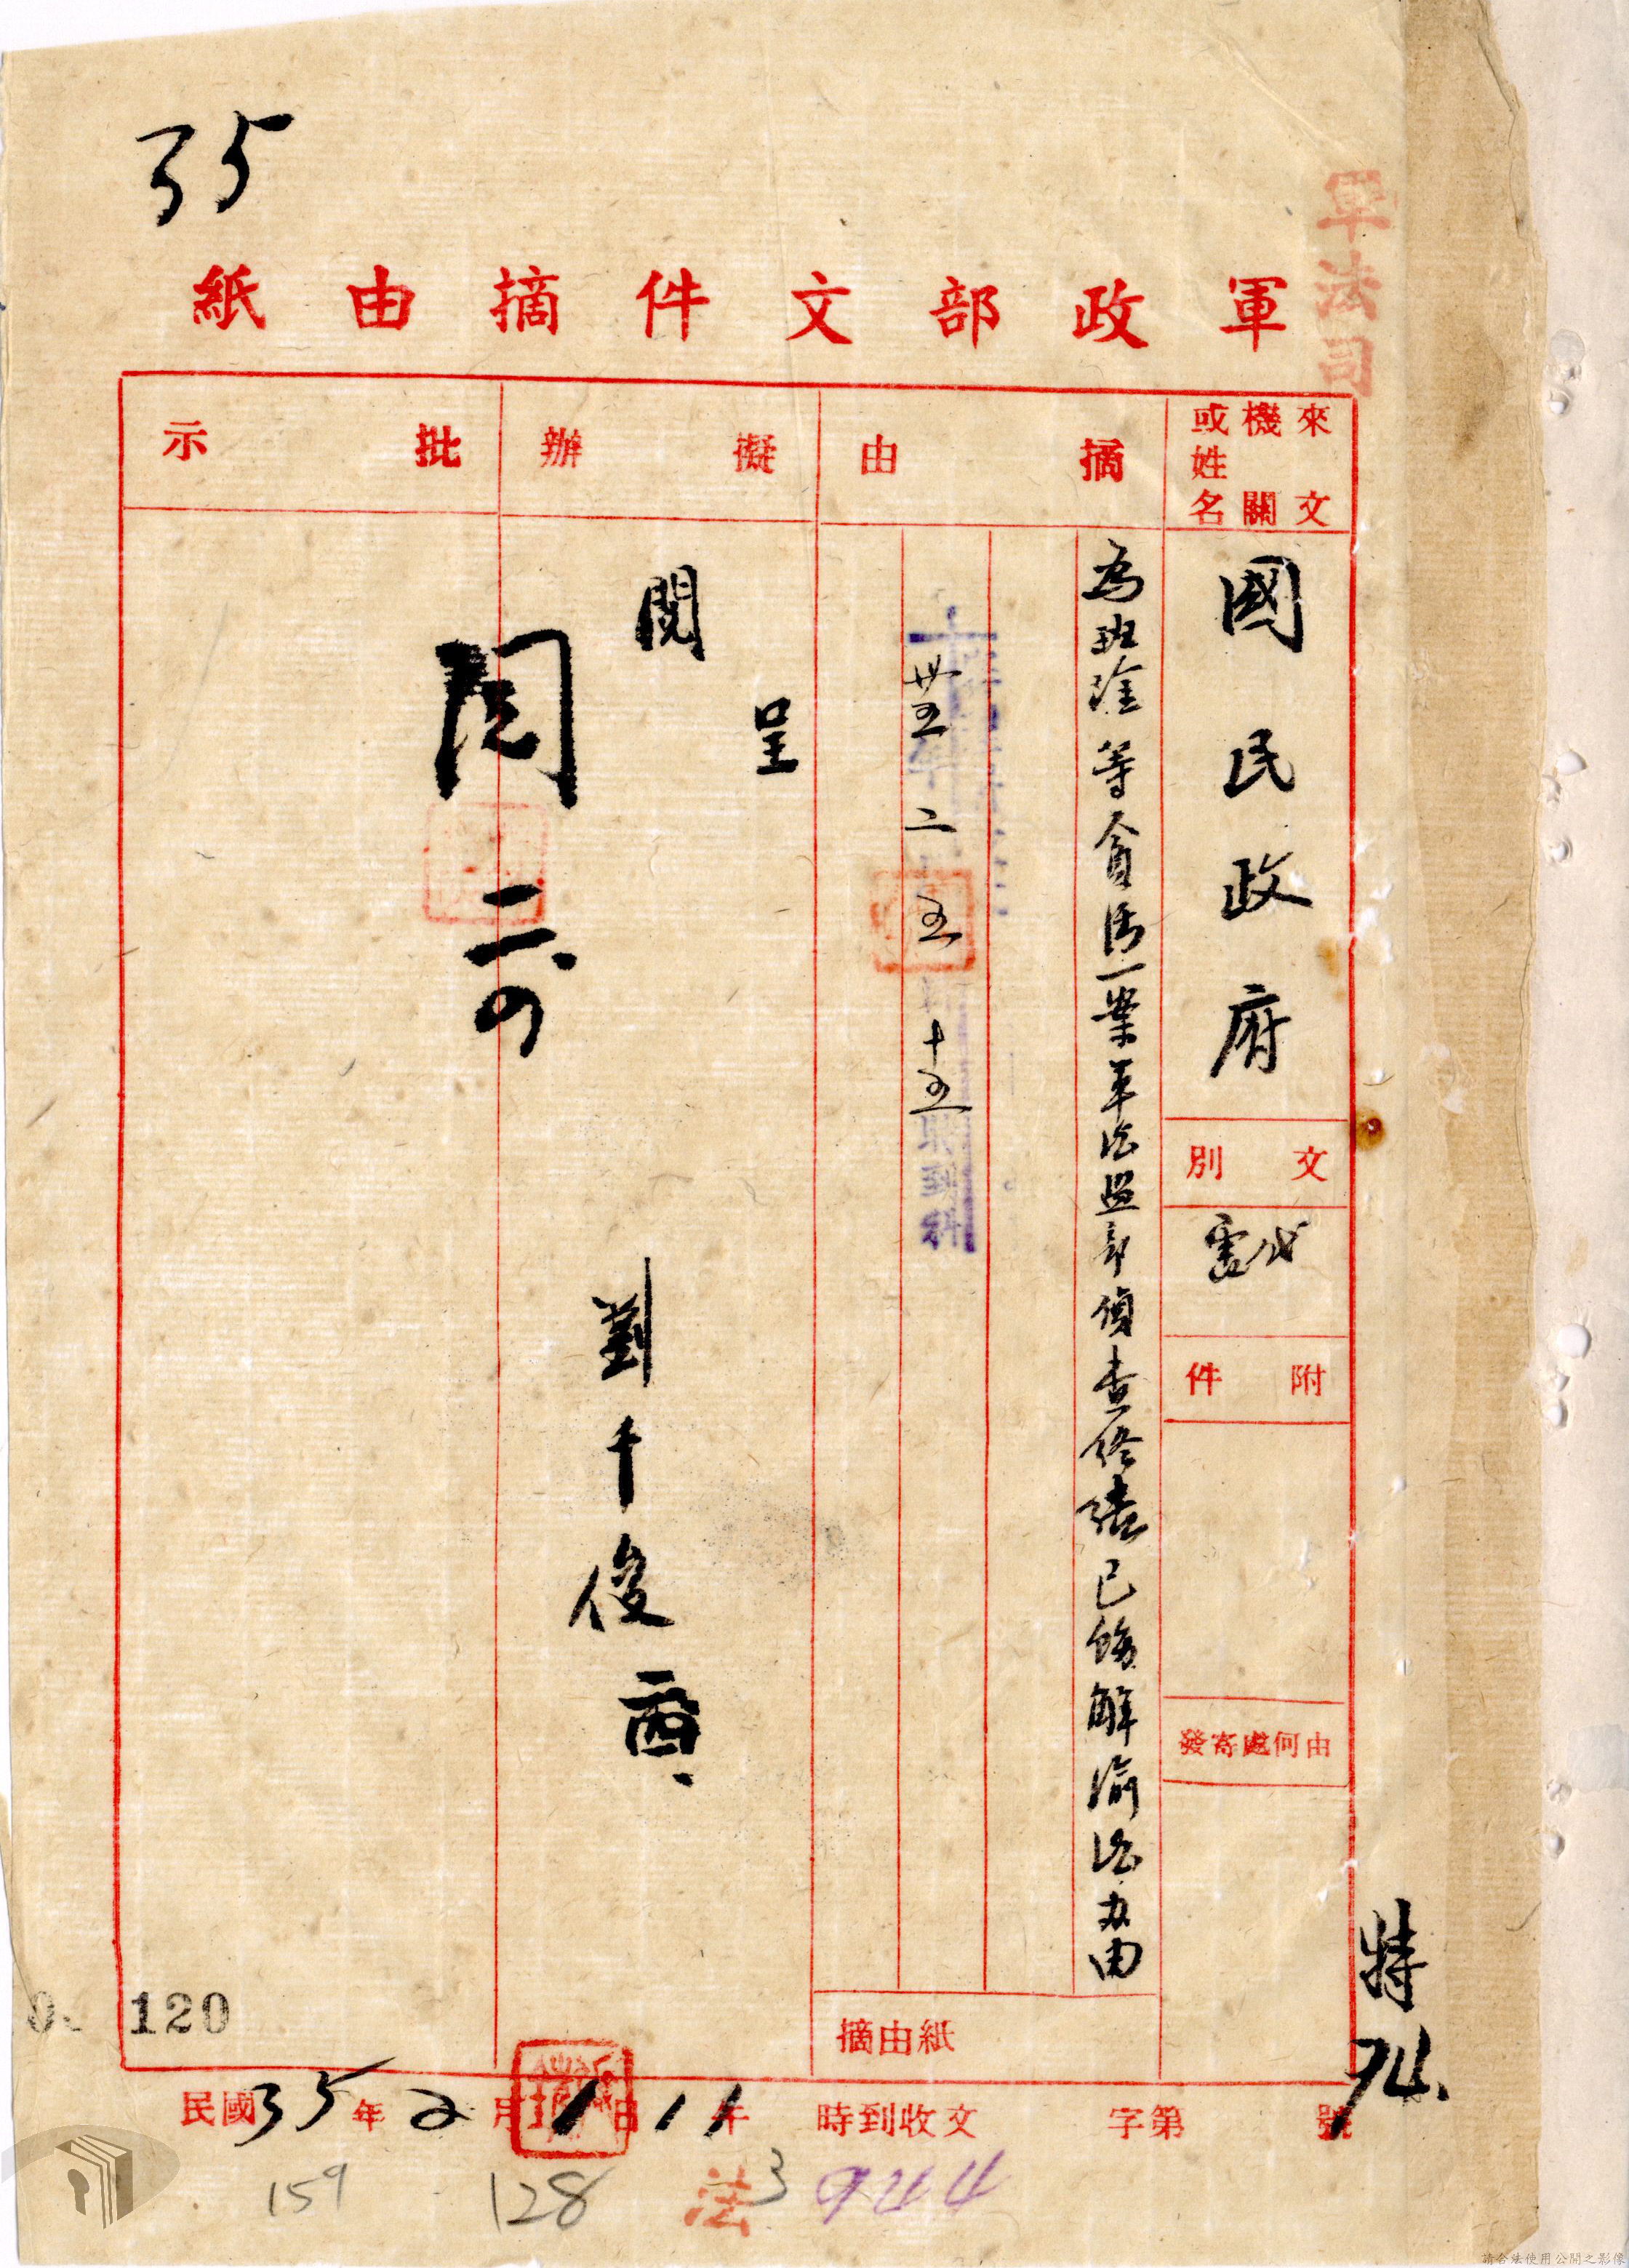 35
軍法司
軍政部文件摘由紙
來文機關或姓名
國民政府
文別
附件
由何處寄發
特74.
摘由
為班淦等貪污一案軍法監部偵查終結已飭解渝法办由
卅五 二 五 十五
摘由紙
擬辦
呈
閱
劉千俊
批示
閱
二.四
0 120
民國35年2月1日11午 時到收文 字第 號
159
128
法
3
944
請合法使用公開之影像